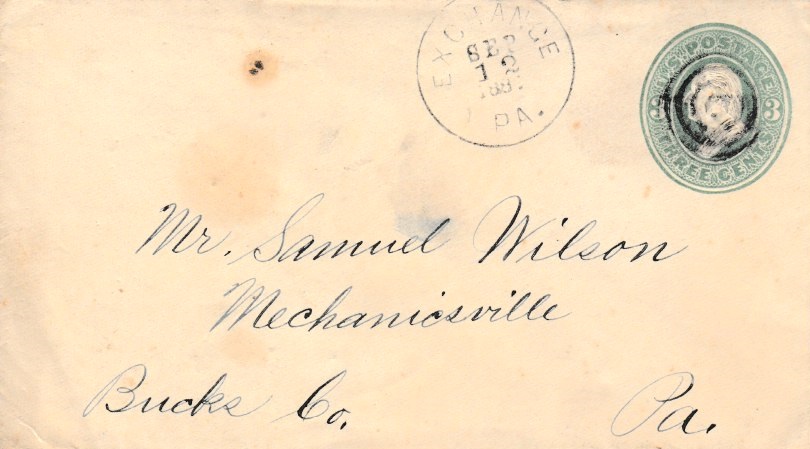 EXCHANGE
SEP
12
PA.
U.S. POSTAGE
3 3
THREE CENTS
Mr. Samuel Wilson
Mechanicsville
Bucks Co. Pa.